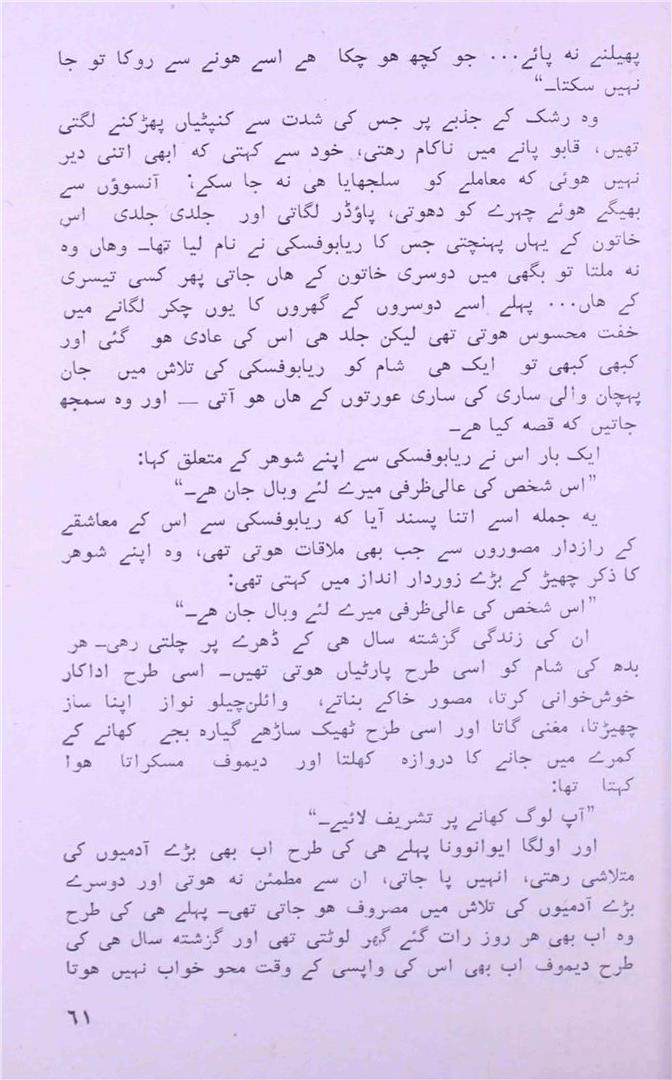 پھیلنے نہ پائے... جو کچھ ہو چکا ہے اسے ہونے سے روکا تو جا
نہیں سکتا۔“
وہ رشک کے جذبے پر جس کی شدت سے کنپٹیاں پھڑکنے لگتی
تھیں، قابو پانے میں ناکام رہتی، خود سے کہتی کہ ابھی اتنی دیر
نہیں ہوئی کہ معاملے کو سلجھایا ہی نہ جا سکے، آنسوؤں سے
بھیگے ہوئے چہرے کو دھوتی، پاؤڈر لگاتی اور جلدی جلدی اس
خاتون کے یہاں پہنچتی جس کا ریابوفسکی نے نام لیا تھا۔ وہاں وہ
نہ ملتا تو بگھی میں دوسری خاتون کے ہاں جاتی پھر کسی تیسری
کے ہاں... پہلے اسے دوسروں کے گھروں کا یوں چکر لگانے میں
خفت محسوس ہوتی تھی لیکن جلد ہی اس کی عادی ہو گئی اور
کبھی کبھی تو ایک ہی شام کو ریابوفسکی کی تلاش میں جان
پہچان والی ساری کی ساری عورتوں کے ہاں ہو آتی — اور وہ سمجھ
جاتیں کہ قصہ کیا ہے۔
ایک بار اس نے ریابوفسکی سے اپنے شوہر کے متعلق کہا:
”اس شخص کی عالی‌ظرفی میرے لئے وبال جان ہے۔“
یہ جملہ اسے اتنا پسند آیا کہ ریابوفسکی سے اس کے معاشقے
کے رازدار مصوروں سے جب بھی ملاقات ہوتی تھی، وہ اپنے شوہر
کا ذکر چھیڑ کے بڑے زوردار انداز میں کہتی تھی:
”اس شخص کی عالی‌ظرفی میرے لئے وبال جان ہے۔“
ان کی زندگی گزشتہ سال ہی کے ڈھرے پر چلتی رہی۔ ہر
بدھ کی شام کو اسی طرح پارٹیاں ہوتی تھیں۔ اسی طرح اداکار
خوش‌خوانی کرتا، مصور خاکے بناتے، وائلن‌چیلو نواز اپنا ساز
چھیڑتا، مغنی گاتا اور اسی طرح ٹھیک ساڑھے گیارہ بجے کھانے کے
کمرے میں جانے کا دروازہ کھلتا اور دیموف مسکراتا ہوا
کہتا تھا:
”آپ لوگ کھانے پر تشریف لائیے۔“
اور اولگا ایوانوونا پہلے ہی کی طرح اب بھی بڑے آدمیوں کی
متلاشی رہتی، انہیں پا جاتی، ان سے مطمئن نہ ہوتی اور دوسرے
بڑے آدمیوں کی تلاش میں مصروف ہو جاتی تھی۔ پہلے ہی کی طرح
وہ اب بھی ہر روز رات گئے گھر لوٹتی تھی اور گزشتہ سال ہی کی
طرح دیموف اب بھی اس کی واپسی کے وقت محو خواب نہیں ہوتا
٦١